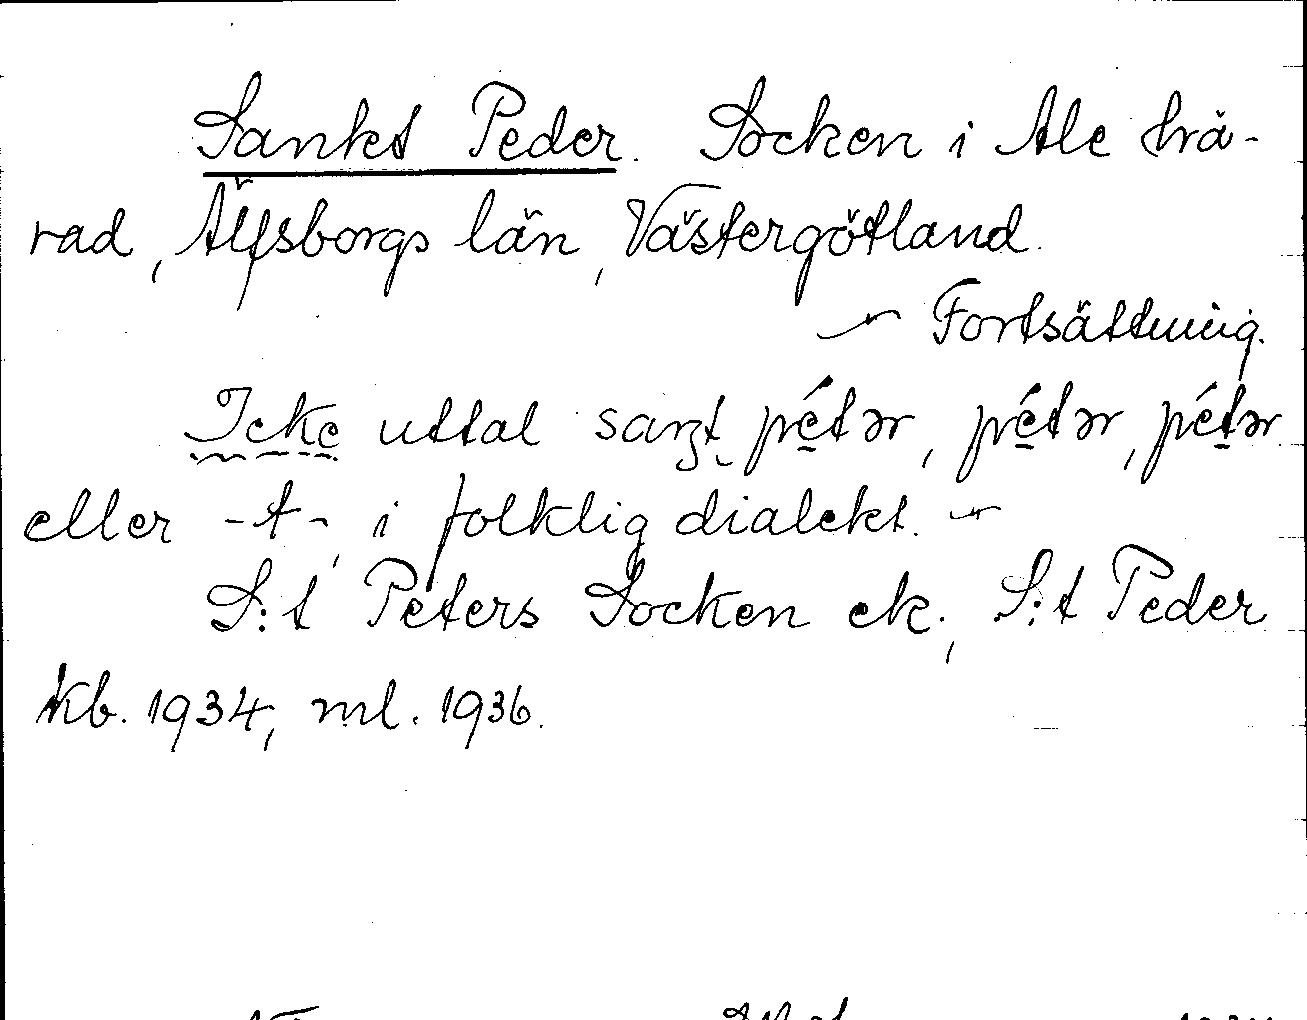 Sankt Peder. Socken i Ale hä-
rad, Älfsborgs län, Västergötland.
— Fortsättning.
Icke uttal saŋt pétər, pétər, pétər
eller -t-, i folklig dialekt. —
S:t Peters Socken ek., S:t Peder
kb. 1934, ml. 1936.